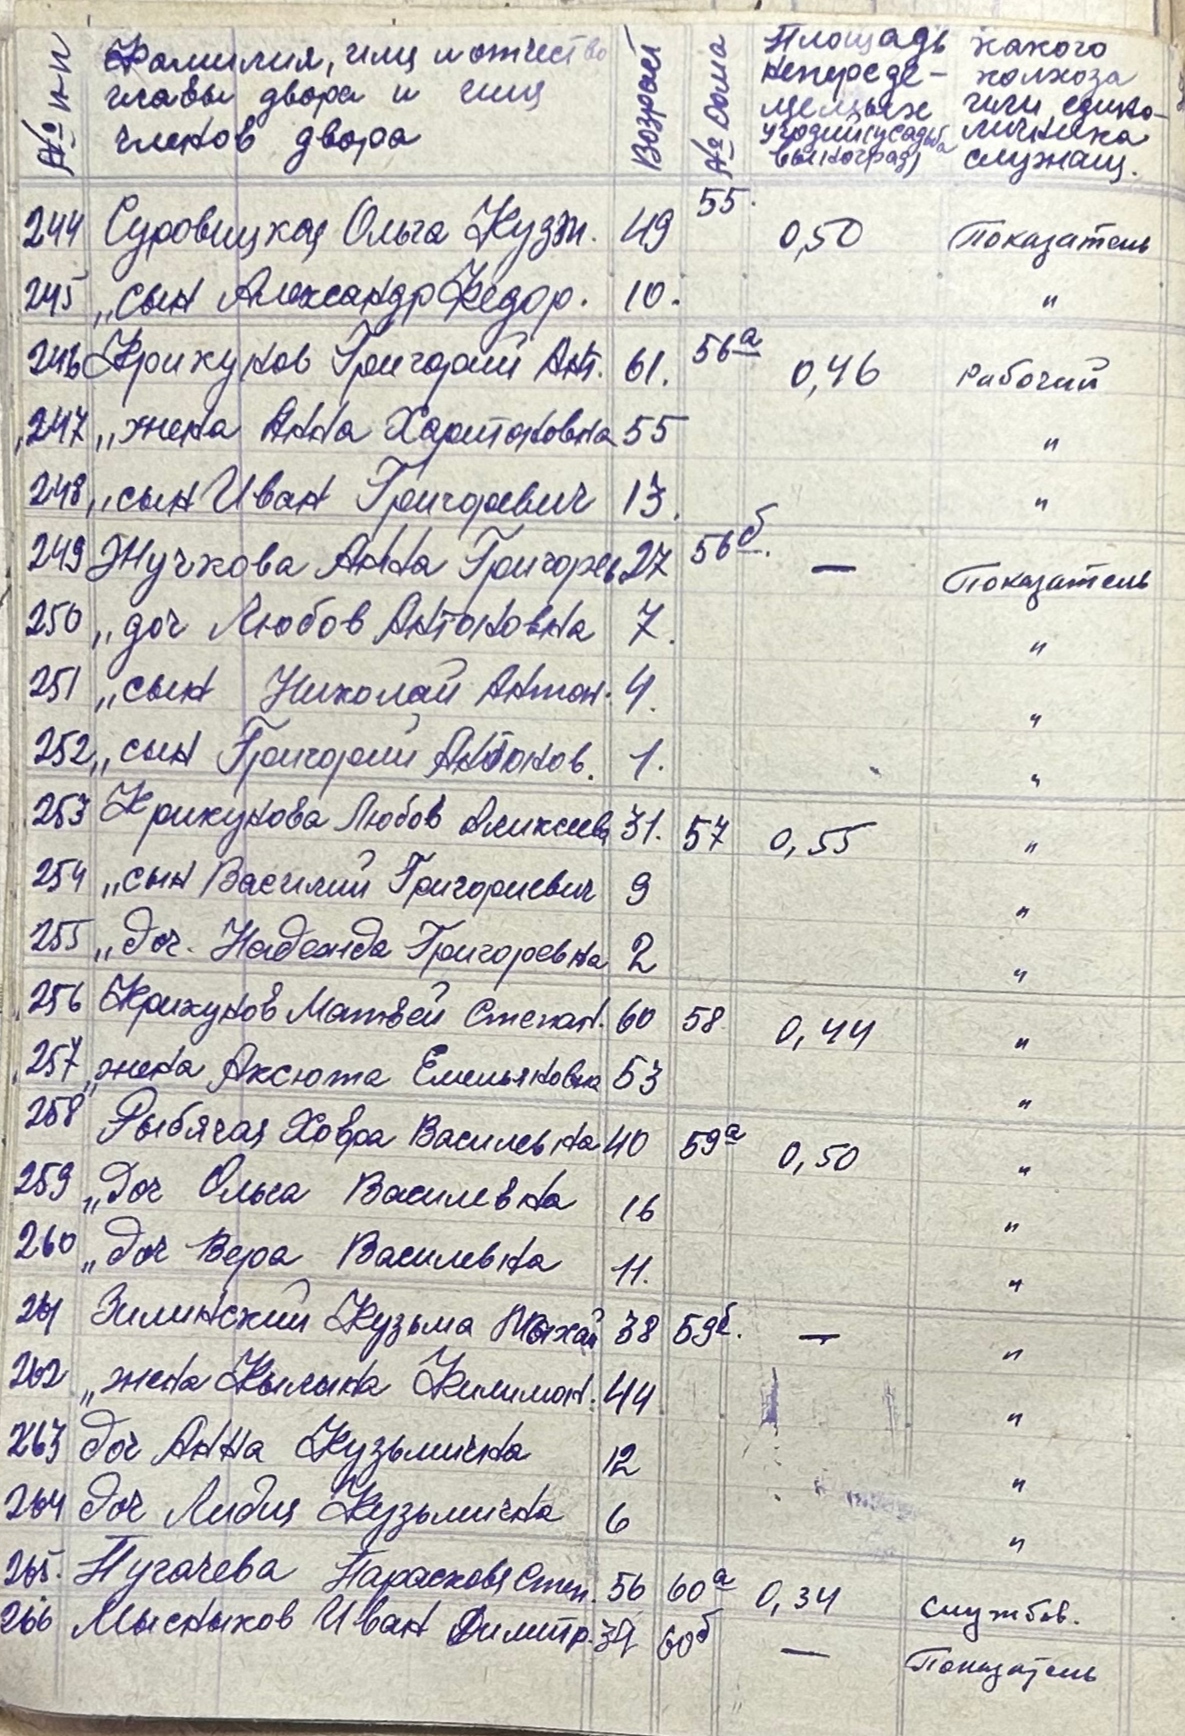 № п-п Фамилия, имя и отчество главы двора и имя членов двора Возраст № дома Площадь непереде- лимых угодий (усадьба виноград) какого колхоза или едино- личника служащ.
244 Суровицкая Ольга Кузм. 49 55. 0,50 Показатель
245 „ сын Александр Федор. 10. "
246 Крикунов Григорий Ант. 61. 56а 0,46 Рабочий
247 „ жена Анна Харитоновна 55 "
248 „ сын Иван Григоревич 13. "
249 Жучкова Анна Григорев 27 56б. — Показатель
250 „ доч Любов Антоновна 7. "
251 „ сын Николай Антон. 4. "
252 „ сын Григорий Антонов. 1. "
253 Крикунова Любов Аликсеев 31. 57 0,55 "
254 „ сын Василий Григориевич 9 "
255 „ доч. Надежда Григоревна 2 "
256 Крикунов Матвей Степан. 60 58 0,44 "
257 „ жена Аксюта Емельяновна 53 "
258 Рыбячая Ховра Василевна 40 59а 0,50 "
259 „ доч Ольга Василевна 16 "
260 „ доч Вера Василевна 11. "
261 Зилинский Кузьма Михай 38 59б. — "
262 „ жена Кылына Килимон. 44 "
263 доч Анна Кузьминична 12 "
264 доч Лидия Кузьминична 6 "
265. Пугачева Парасковя Степ. 56 60а 0,34 службов.
266 Мысныков Иван Димитр. 34 60б — Показатель